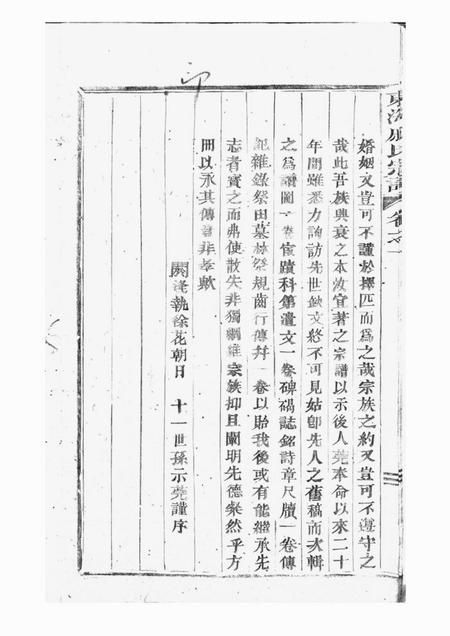 婚姻又豈可不謹於擇匹而為之哉宗族之約又豈可不遵守之
哉此吾族興衰之本故宜著之宗譜以示後人蕘奉命以來二十
年間雖悉力詢訪先世缺文終不可見姑卽先人之舊稿而次輯
之為譜圖一卷宦蹟科第遺文一卷碑碣誌銘詩章尺牘一卷傳
記雜錄祭田墓林祭規齒行傳幷一卷以貽我後或有能繼承先
志者寶之而弗使散失非獨綱維宗族抑且闡明先德粲然乎方
冊以永其傳者非孝歟
閼逢執徐花朝日 十一世孫示蕘謹序